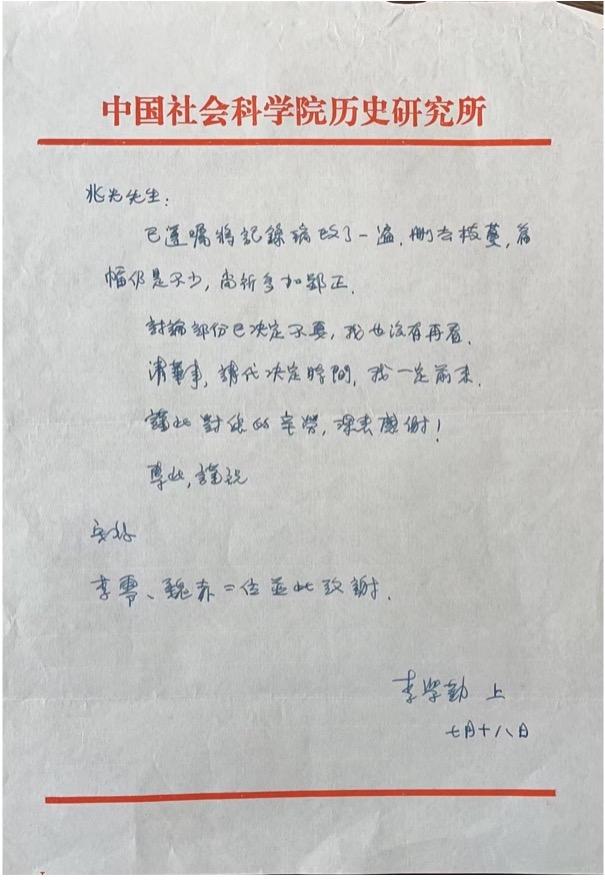 中国社会科学院历史研究所
兆光先生:
已遵囑將記錄稿改了一遍,刪去枝蔓,篇
幅仍是不少,尚祈多加郢正.
討論部份已决定不要,我也沒有再看.
清華事,請代决定時間,我一定前来.
謹此對您的辛勞,深表感谢!
專此,謹祝
安好
李零、魏赤二位並此致謝.
李学勤 上
七月十八日